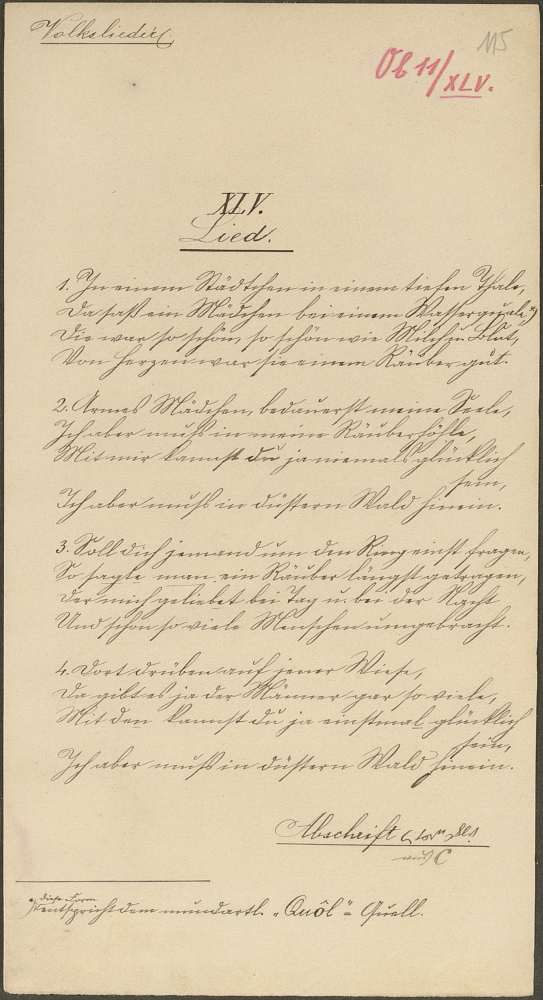 Volkslieder.
115
Ob 11/XLV.
XLV.
Lied.
1. In einem Städtchen in einem tiefen Thale,
Da saß ein Mädchen bei einem Wasserquale,*)
Die war so schön, so schön wie Milch u. Blut,
Von Herzen war sie einem Räuber gut.
2. Armes Mädchen, bedauerst meine Seele,
Ich aber muß in meine Räuberhöhle,
Mit mir kannst du ja niemals glücklich
sein,
Ich aber muß in düstern Wald hinein.
3. Soll dich jemand um den Ring einst fragen,
So sagte man ein Räuber längst getragen,
Der mich geliebet bei Tag u. bei der Nacht
Und schon so viele Menschen umgebracht.
4. Dort drüben auf jener Wiese,
Da gibt es ja der Männer gar so viele,
Mit den kannst du ja einstmal glücklich
sein,
Ich aber muß in düstern Wald hinein.
Abschrift
aus C
*) diese Form
entspricht dem mundartl. „Quôl" = Quell.